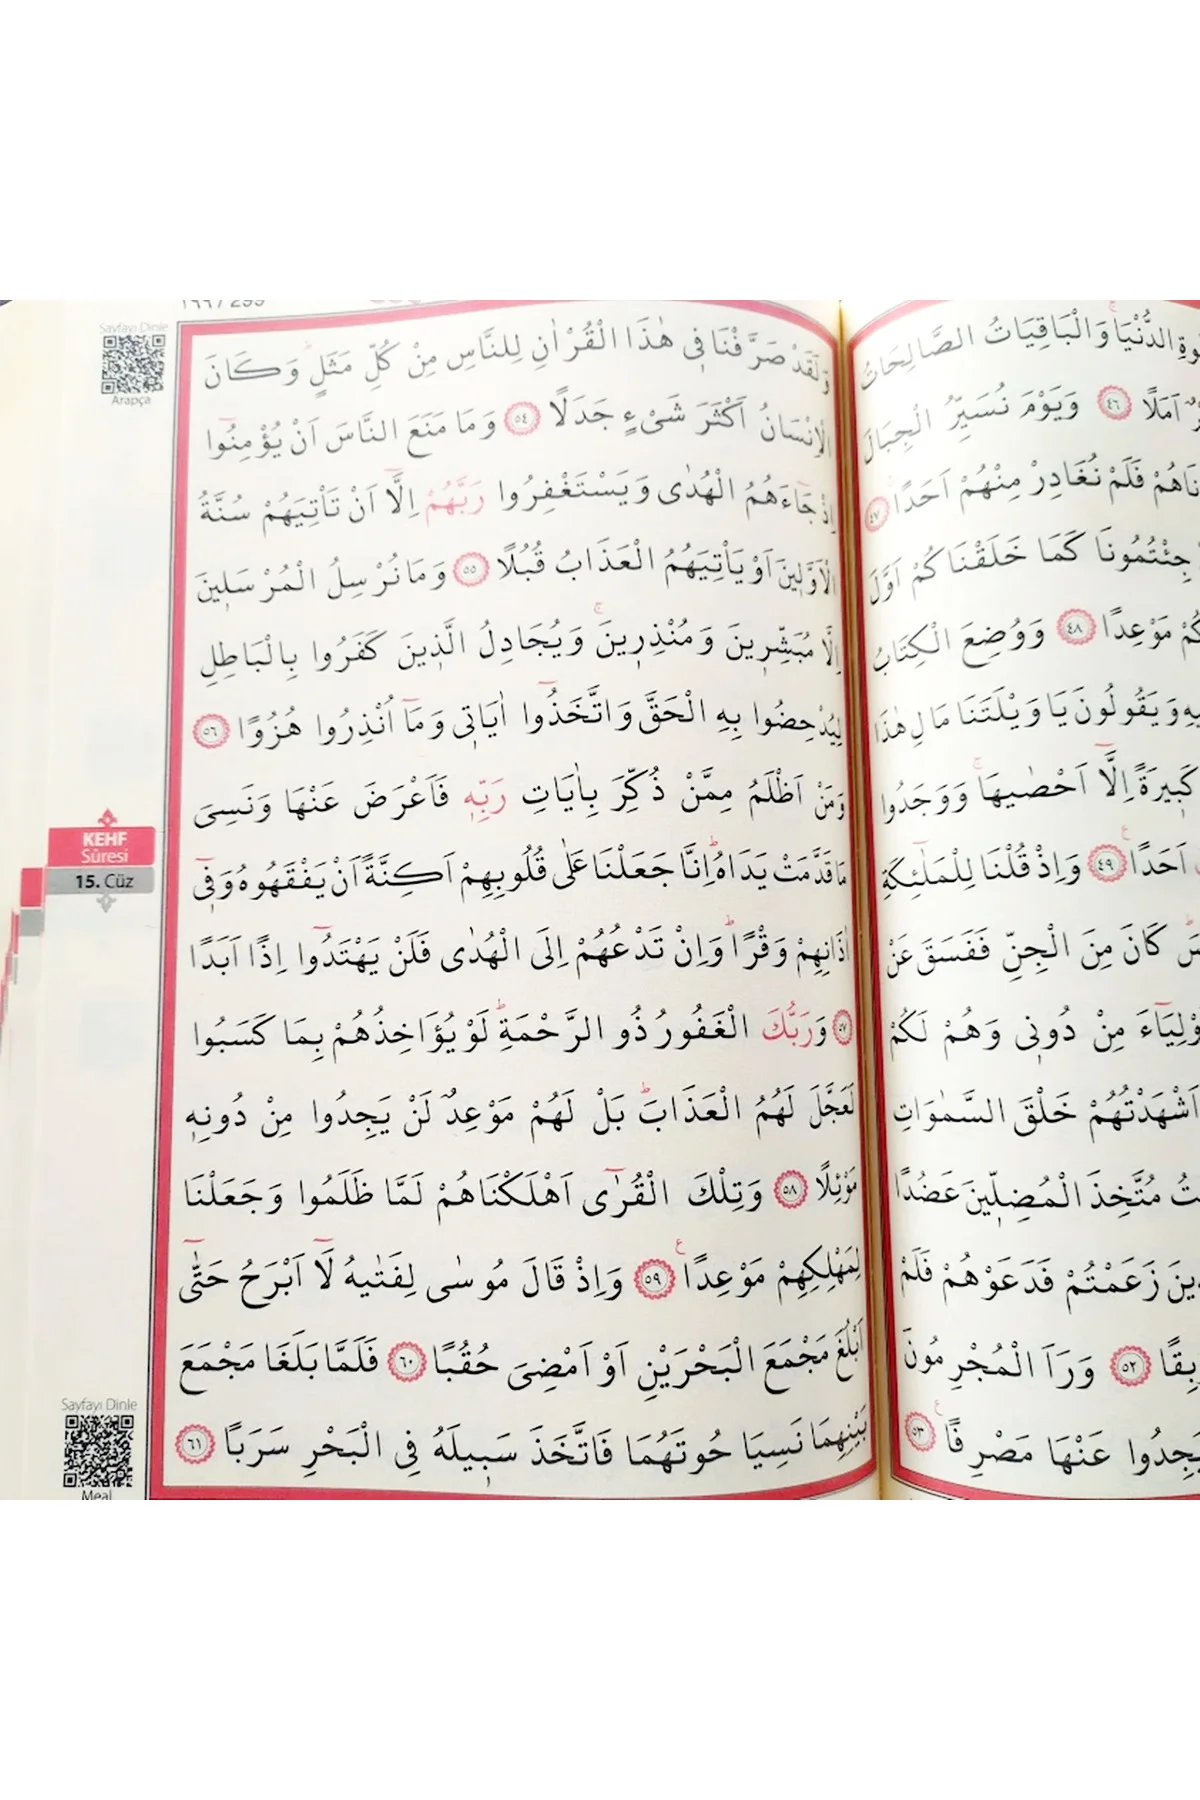 وَلَقَدْ صَرَّفْنَا فٖي هٰذَا الْقُرْاٰنِ لِلنَّاسِ مِنْ كُلِّ مَثَلٍۜ وَكَانَ
الْاِنْسَانُ اَكْثَرَ شَيْءٍ جَدَلًا ٥٤ وَمَا مَنَعَ النَّاسَ اَنْ يُؤْمِنُٓوا
اِذْ جَٓاءَهُمُ الْهُدٰى وَيَسْتَغْفِرُوا رَبَّهُمْ اِلَّٓا اَنْ تَأْتِيَهُمْ سُنَّةُ
الْاَوَّلٖينَ اَوْ يَأْتِيَهُمُ الْعَذَابُ قُبُلًا ٥٥ وَمَا نُرْسِلُ الْمُرْسَلٖينَ
اِلَّا مُبَشِّرٖينَ وَمُنْذِرٖينَۚ وَيُجَادِلُ الَّذٖينَ كَفَرُوا بِالْبَاطِلِ
لِيُدْحِضُوا بِهِ الْحَقَّ وَاتَّخَذُٓوا اٰيَاتٖي وَمَٓا اُنْذِرُوا هُزُوًا ٥٦
وَمَنْ اَظْلَمُ مِمَّنْ ذُكِّرَ بِاٰيَاتِ رَبِّهٖ فَاَعْرَضَ عَنْهَا وَنَسِيَ
مَا قَدَّمَتْ يَدَاهُۜ اِنَّا جَعَلْنَا عَلٰى قُلُوبِهِمْ اَكِنَّةً اَنْ يَفْقَهُوهُ وَفٖٓي
اٰذَانِهِمْ وَقْرًاۜ وَاِنْ تَدْعُهُمْ اِلَى الْهُدٰى فَلَنْ يَهْتَدُٓوا اِذًا اَبَدًا
٥٧ وَرَبُّكَ الْغَفُورُ ذُو الرَّحْمَةِۜ لَوْ يُؤَاخِذُهُمْ بِمَا كَسَبُوا
لَعَجَّلَ لَهُمُ الْعَذَابَۜ بَلْ لَهُمْ مَوْعِدٌ لَنْ يَجِدُوا مِنْ دُونِهٖ
مَوْئِلًا ٥٨ وَتِلْكَ الْقُرٰٓى اَهْلَكْنَاهُمْ لَمَّا ظَلَمُوا وَجَعَلْنَا
لِمَهْلِكِهِمْ مَوْعِدًا ع ٥٩ وَاِذْ قَالَ مُوسٰى لِفَتٰيهُ لَٓا اَبْرَحُ حَتّٰٓى
اَبْلُغَ مَجْمَعَ الْبَحْرَيْنِ اَوْ اَمْضِيَ حُقُبًا ٦٠ فَلَمَّا بَلَغَا مَجْمَعَ
بَيْنِهِمَا نَسِيَا حُوتَهُمَا فَاتَّخَذَ سَبٖيلَهُ فِي الْبَحْرِ سَرَبًا ٦١
الدُّنْيَاۚ وَالْبَاقِيَاتُ الصَّالِحَاتُ
اَمَلًا ٤٦ وَيَوْمَ نُسَيِّرُ الْجِبَالَ
فَلَمْ نُغَادِرْ مِنْهُمْ اَحَدًا ٤٧
جِئْتُمُونَا كَمَا خَلَقْنَاكُمْ اَوَّلَ
مَوْعِدًا ٤٨ وَوُضِعَ الْكِتَابُ
وَيَقُولُونَ يَا وَيْلَتَنَا مَا لِ هٰذَا
كَبٖيرَةً اِلَّٓا اَحْصٰيهَاۚ وَوَجَدُوا
اَحَدًا ع ٤٩ وَاِذْ قُلْنَا لِلْمَلٰٓئِكَةِ
كَانَ مِنَ الْجِنِّ فَفَسَقَ عَنْ
مِنْ دُونٖي وَهُمْ لَكُمْ
اَشْهَدْتُهُمْ خَلْقَ السَّمٰوَاتِ
مُتَّخِذَ الْمُضِلّٖينَ عَضُدًا
زَعَمْتُمْ فَدَعَوْهُمْ فَلَمْ
٥٢ وَرَاَ الْمُجْرِمُونَ
عَنْهَا مَصْرِفًا ع ٥٣
Sayfayı Dinle
Arapça
KEHF
Sûresi
15. Cüz
Sayfayı Dinle
Meal